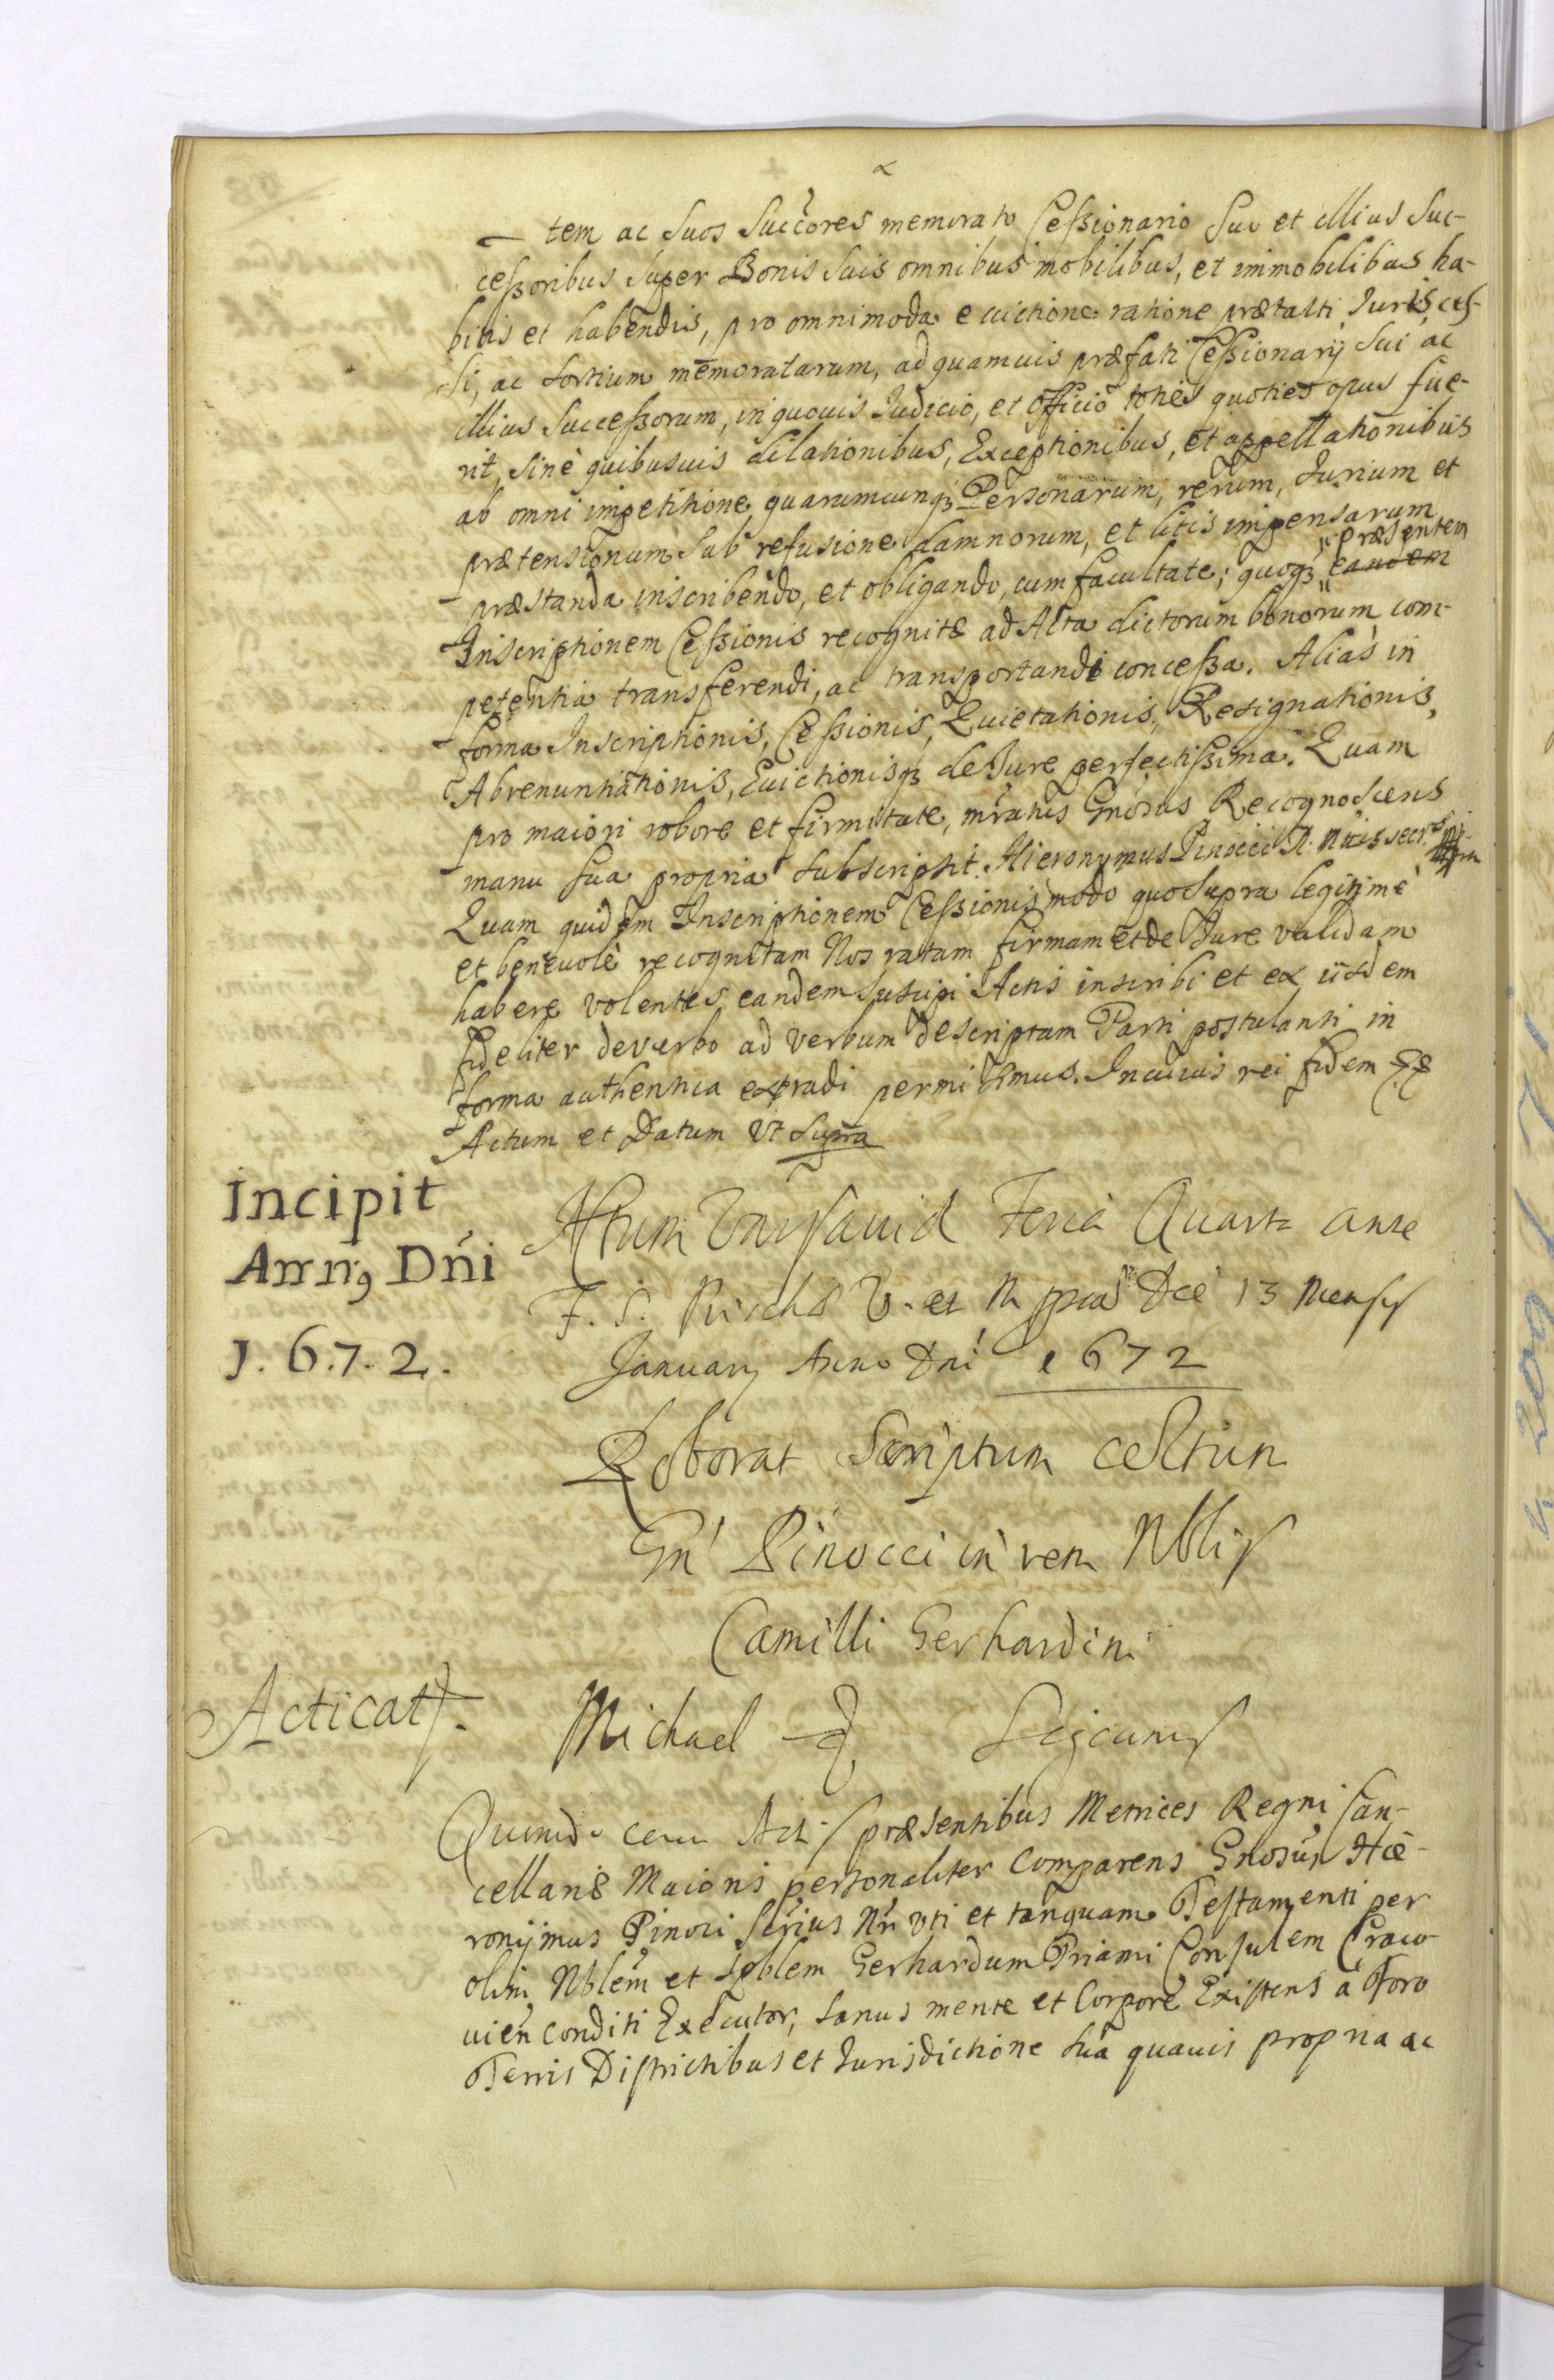 tem ac suos succ̃ores memorato Cessionario suo et illius suc-
cessoribus super Bonis suis omnibus mobilibus, et immobilibus ha-
bitis et habendis, pro omnimoda evictione ratione prætacti Juris, ces-
si, ac sortium memoratarum, ad quamuis præfati Cessionarij sui ac
illius Successorum, in quouis Judicio, et officio toties quoties opus fue-
rit, sinè quibusuis dilationibus, Exceptionibus, et appellationibus
ab omni impetitione quarumcunqꝫ Personarum, rerum, Jurium et
prætensionum sub refusione damnorum, et litis impensarum
præstanda inscribendo, et obligando, cum facultate; quoqꝫ eandem præsentem
Inscriptionem Cessionis recognitæ ad Acta dictorum bonorum com-
petentia transferendi, ac transportandi concessa. Aliàs in
forma Inscriptionis, Cessionis, Quietationis, Resignationis,
Abrenuntiationis, Euictionisqꝫ de Jure perfectissima. Quam
pro maiori robore et firmitate, mratus Gnosus Recognoscens
manu sua propria subscripsit. Hieronymus Pinocci
Quam quidem Inscriptionem Cessionis modo quo supra legitimè
et beneuolè recognitam Nos ratam firmam et de Jure validam
habere volentes eandem suscipi Actis inscribi et ex iisdem
fideliter de verbo ad verbum descriptam Parti postulanti in
forma authentica extradi permisimus. In cuius rei fidem
Actum et Datum vt supra
Incipit
Anng Dñi
1.6.7.2.
Actum Varsauiæ Feria Quarta ante
F. S. Priscæ V. et M. pxa Die 13 Mensis
January Anno Dni 1672
Roborat Scriptum certum
Gn Pinocci in rem Nblis
Camilli Gerhardini
Acticat.
Michael
Quomodo coram Actis præsentibus Metrices Regni Can-
cellariæ Maioris personaliter Comparens Gnosus Hie-
ronijmus Pinoci Scrius Nr vti et tanquam Testamenti per
olim Nblem et Spblem Gerhardum Priami Consulem Craco-
uien conditi Executor, sanus mente et Corpore Existens à Foro
Terris Districtibus et Jurisdictione sua quauis propria ac